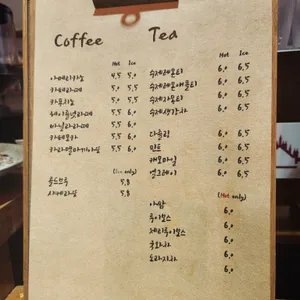 Coffee
Hot Ice
아메리카노 4.5 5.0
카페라떼 5.5 5.0
카푸치노 5.5 5.0
헤이즐넛라떼 5.5 6.0
바닐라라떼 5.5 6.0
카페모카 5.5 6.0
카라멜마끼아또 5.5 6.0
(Ice only)
콜드브루 5.8
샤케라또 5.8
Tea
Hot Ice
수제레몬티 6.0 6.5
6.0 6.5
수제자몽티 6.0 6.5
수제생강차 6.0
다즐링 6.0 6.5
민트 6.0 6.5
캐모마일 6.0 6.5
얼그레이 6.0 6.5
(Hot only)
6.0
루이보스 6.0
제티루이보스 6.0
국화차 6.0
도라지차 6.0
6.0